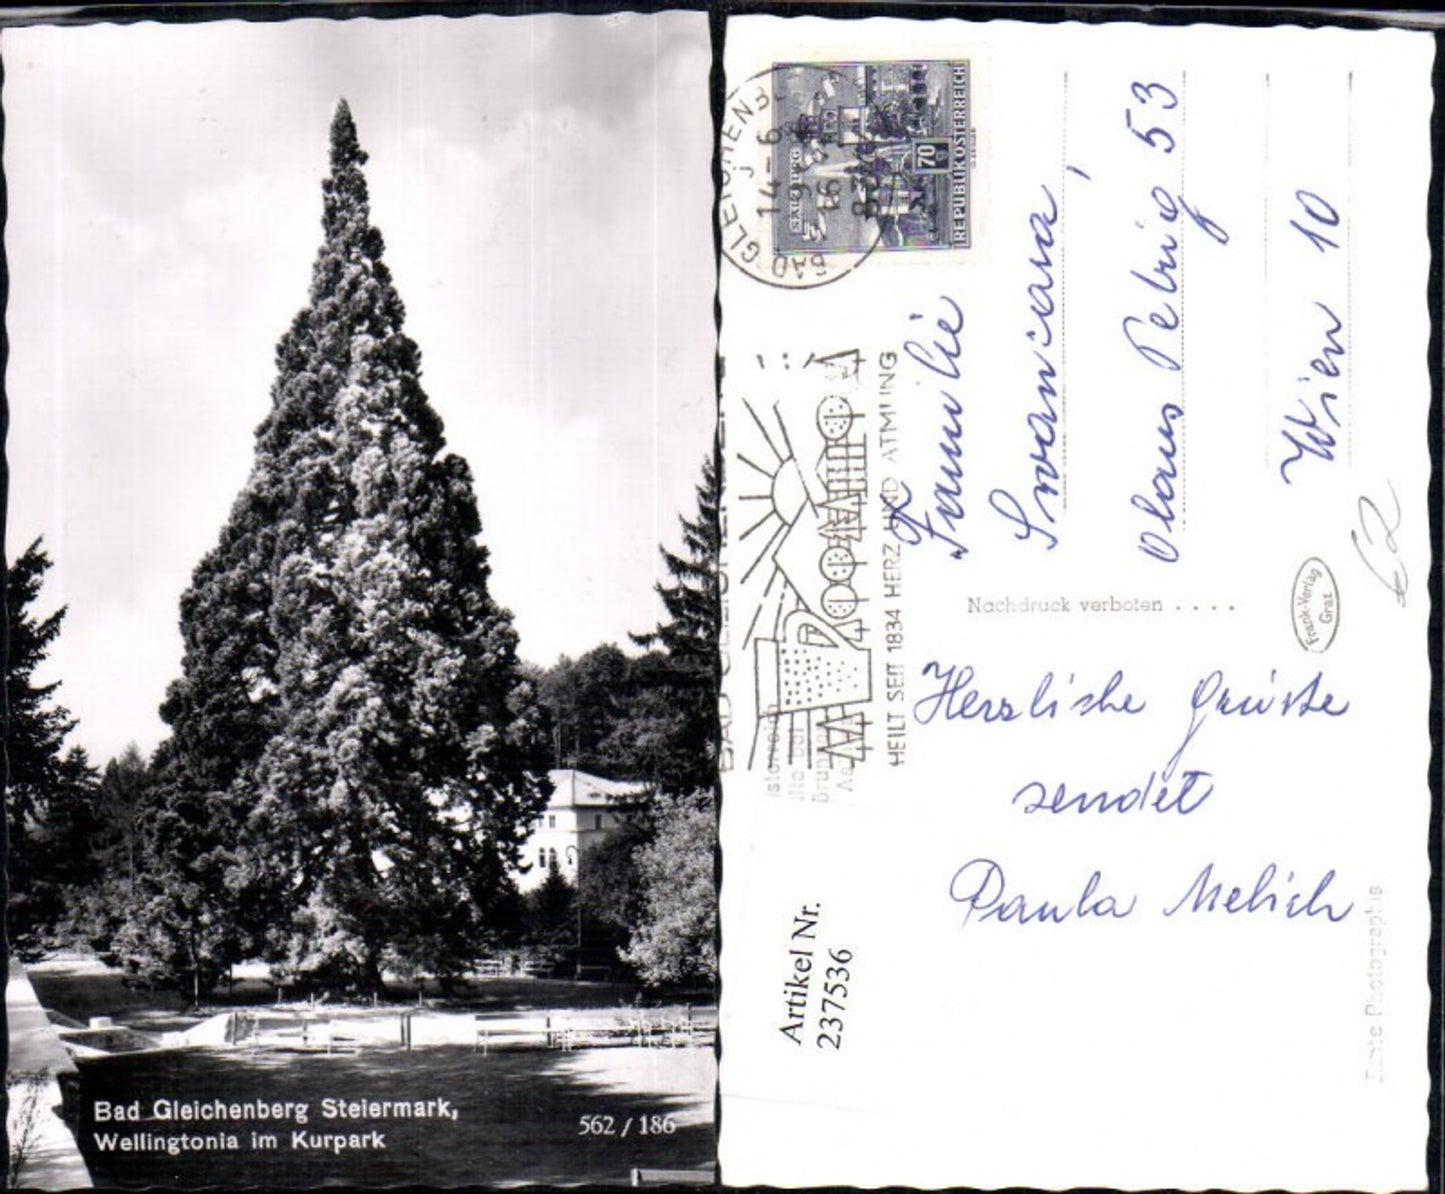 Bad Gleichenberg Steiermark,
Wellingtonia im Kurpark
562 / 186
BAD GLEICHENBERG
14-6
16
SALZBURG
70
REPUBLIK ÖSTERREICH
BAD GLEICHENBERG
HEILT SEIT 1834 HERZ UND ATMUNG
Familie
Olaus Petrig 53
Wien 10
Nachdruck verboten . . . .
Frank-Verlag
Graz
€2
Herzliche Grüsse
sendet
Paula Melich
Artikel Nr.
237536
Echte Photographie